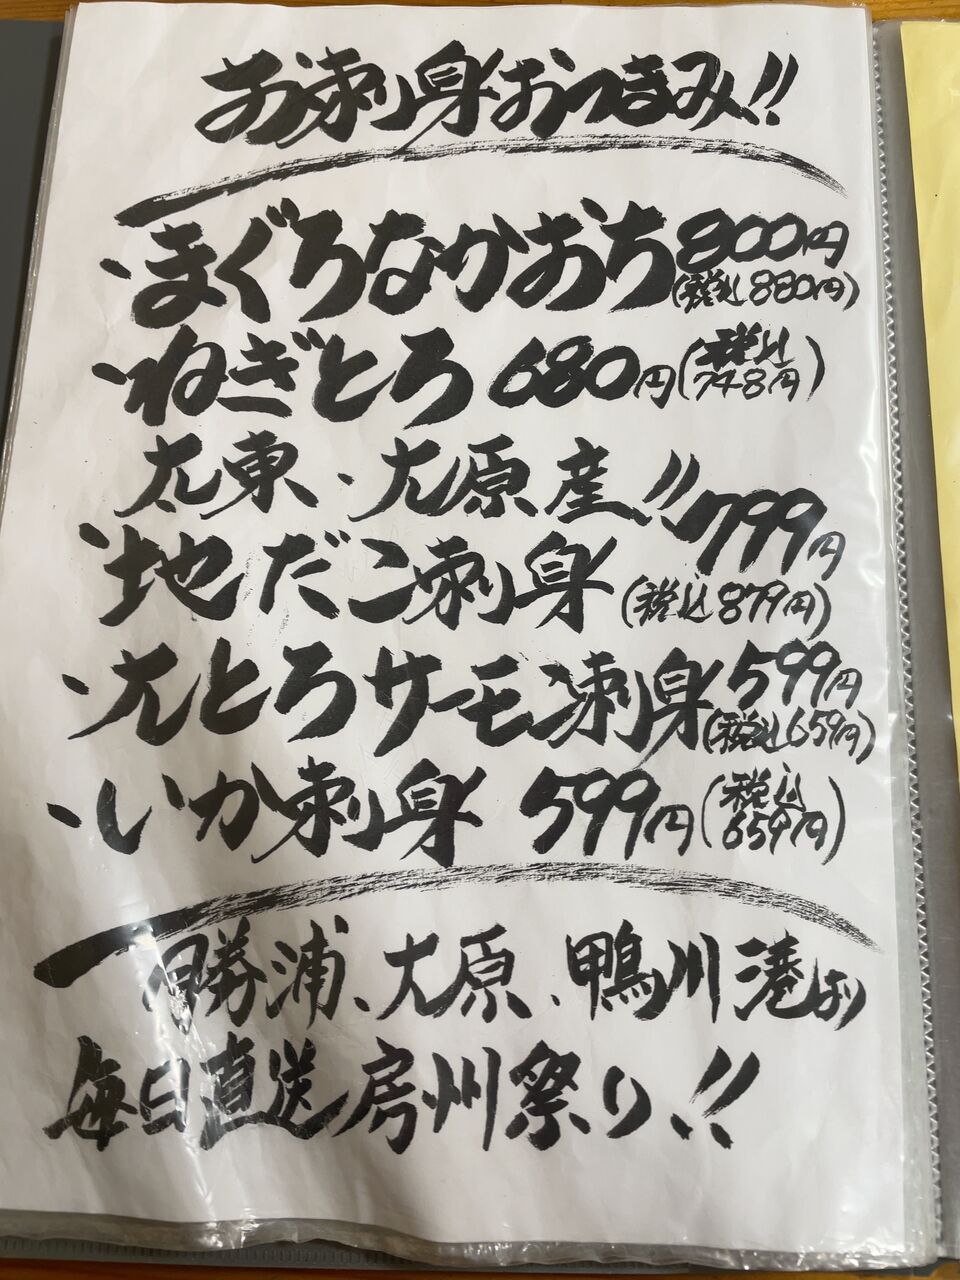 お刺身おつまみ!!
・まぐろなかおち 800円
(税込880円)
・ねぎとろ 680円(税込748円)
太東、大原産!!
・地だこ刺身 799円
(税込879円)
・大とろサーモン刺身 599円
(税込659円)
・いか刺身 599円(税込659円)
勝浦、大原、鴨川港より
毎日直送房州祭り!!